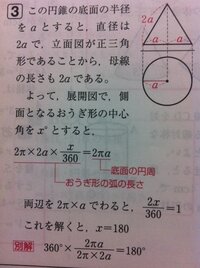 3 この円錐の底面の半径
を a とすると，直径は
2a で，立面図が正三角
形であることから，母線
の長さも 2a である。
よって，展開図で，側
面となるおうぎ形の中心
角を x° とすると，
2π×2a×x/360=2πa
底面の円周
おうぎ形の弧の長さ
両辺を 2π×a でわると，2x/360=1
これを解くと，x=180
別解 360°×2πa/2π×2a=180°
2a
a a
a